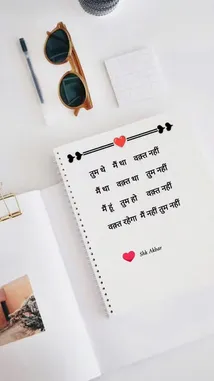 तुम थे मैं था वक़्त नहीं
मैं था वक़्त था तुम नहीं
मैं हूं तुम हो वक़्त नहीं
वक़्त रहेगा मैं नहीं तुम नहीं
Shk Akbar